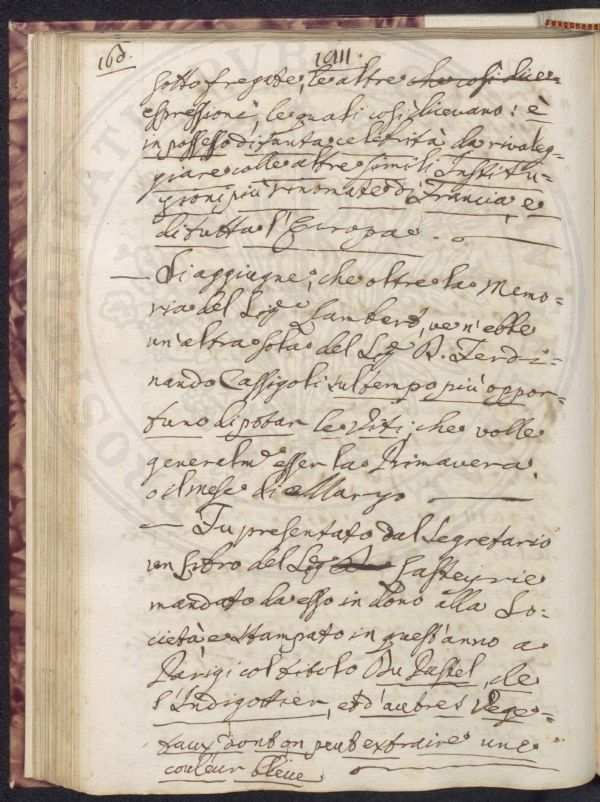 160.
1811.
sotto fregate, le altre che così dice=
espressioni, le quali così dicevano: è
in possesso di tanta celebrità da rivaleg=
giare colle altre simili Institu=
zioni più rinomate di Francia, e
di tutta l'Europa.
— Si aggiugne, che oltre la Memo=
ria del Sig.e Lamberò, ve n'ebbe
un'altra sola del Sig. D. Ferdi=
nando Cassigoli sul tempo più oppor=
tuno di potar le Viti, che volle
generalm.e esser la Primavera,
o il mese di Marzo —
— Fu presentato dal Segretario
un Libro del Sig. Lasteyrie
mandato da esso in dono alla So=
cietà e stampato in quest'anno a
Parigi col titolo Du Pastel, de
l'Indigotier, et d'autres Vege=
taux dont on peut extraire une
couleur bleue